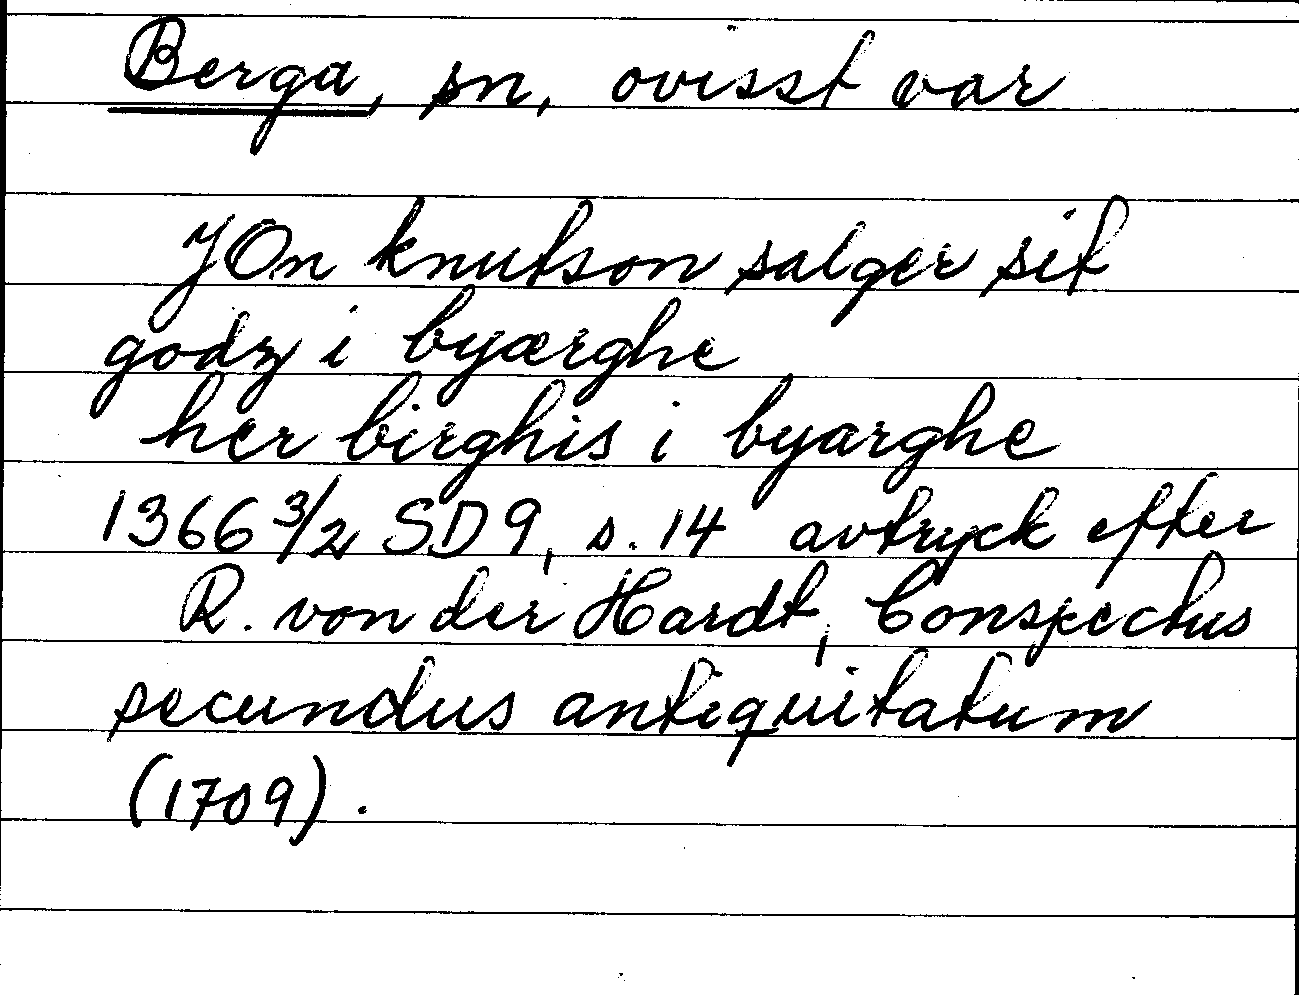 Berga, sn, ovisst var
JOn knutson salger sit
godz i byærghe
her birghis i byarghe
1366 3/2 SD 9, s. 14 avtryck efter
R. von der Hardt, Conspectus
secundus antiquitatum
(1709).